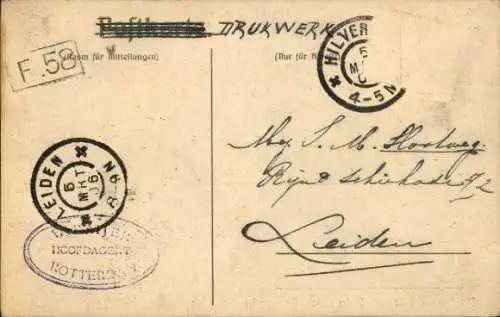 Postkarte DRUKWERK
(Raum für Mitteilungen)
(Nur für
F. 58
HILVER
5
4-5 N
LEIDEN
5
MRT
06
8-9N
HOOFDAGENT
ROTTERDAM
Mej. S. M. Slootweg.
Rijn & Schiekade 72
Leiden